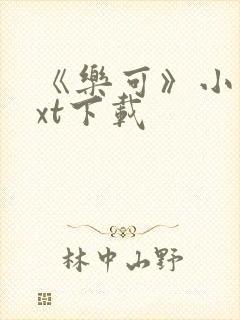 《樂可》小
xt下載
林中山野